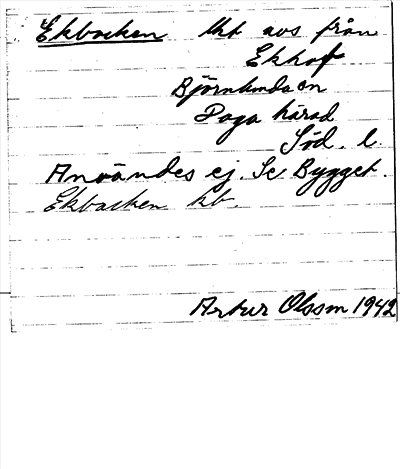 Ekbacken lht avs från
Ekhof
Björnlunda sn
Daga härad
Söd. l.
Användes ej. Se Bygget.
Ekbacken kb.
Artur Olsson 1942